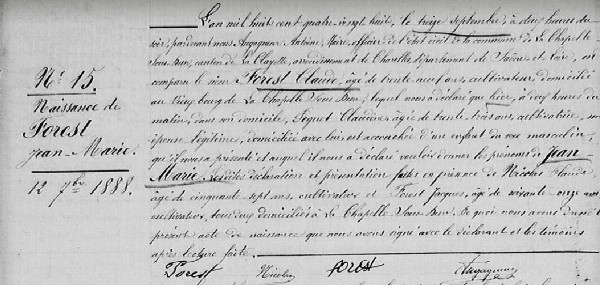 N° 15.
Naissance de
Forest
Jean-Marie.
12 7bre 1888.
L'an mil huit cent quatre-vingt huit, le treize septembre, à deux heures du
soir, pardevant nous Augagneur Antoine, Maire, officier de l'état civil de la commune de La Chapelle
Sous Dun, canton de La Clayette, arrondissement de Charolles, département de Saône et Loire, est
comparu le sieur Forest Claude, âgé de trente neuf ans, cultivateur, domicilié
au bourg de La Chapelle Sous Dun, lequel nous a déclaré que hier, à deux heures du
matin, dans son domicile, Claudine, âgée de trente trois ans, cultivatrice, son
épouse légitime, domiciliée avec lui, est accouchée d'un enfant du sexe masculin,
qu'il nous a présenté et auquel il nous a déclaré vouloir donner les prénoms de Jean
Marie. Lesdites déclaration et présentation faites en présence de Nicolas Claude,
âgé de cinquante sept ans, cultivateur et Forest Jacques, âgé de soixante-onze ans
cultivateur, tous deux domiciliés à La Chapelle Sous Dun. De quoi nous avons dressé le
présent acte de naissance que nous avons signé avec le déclarant et les témoins
après lecture faite.
Forest Nicolas Forest Augagneur